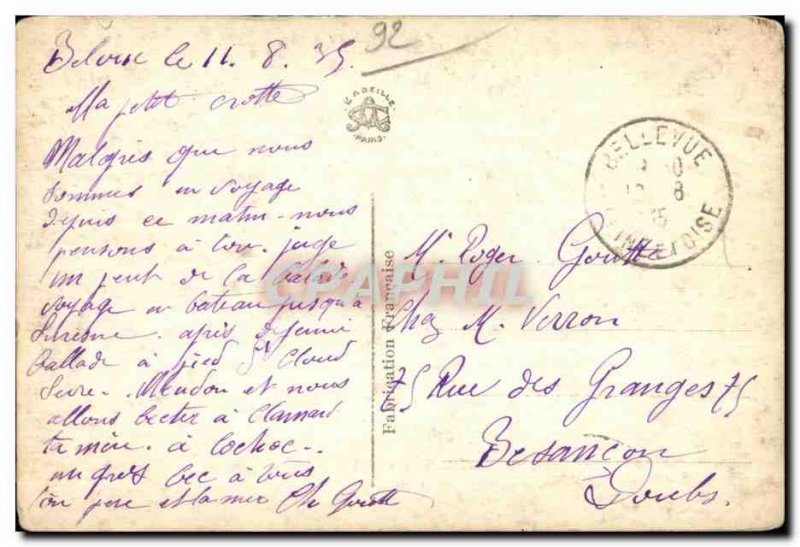 le 11. 8. 35.
92
Ma petit crotte
Malgres que nous
sommes en voyage
depuis ce matin. nous
pensons à toi. juge
un peut de la balade
voyage en bateau jusqu'a
Suresne. apres dejeuni
ballade à pied St Cloud
Sevre. Meudon et nous
allons becter à Clamard
ta mère. à
un gros bec à tous
ton pere et ta mer Ch Goutte
L'ABEILLE
PARIS
Fabrication Française
BELLEVUE
8
35
SEINE ET OISE
Mr Roger Goutte
Chez M. Verron
75 Rue des Granges 75
Besançon
Doubs.
CPAPHIL